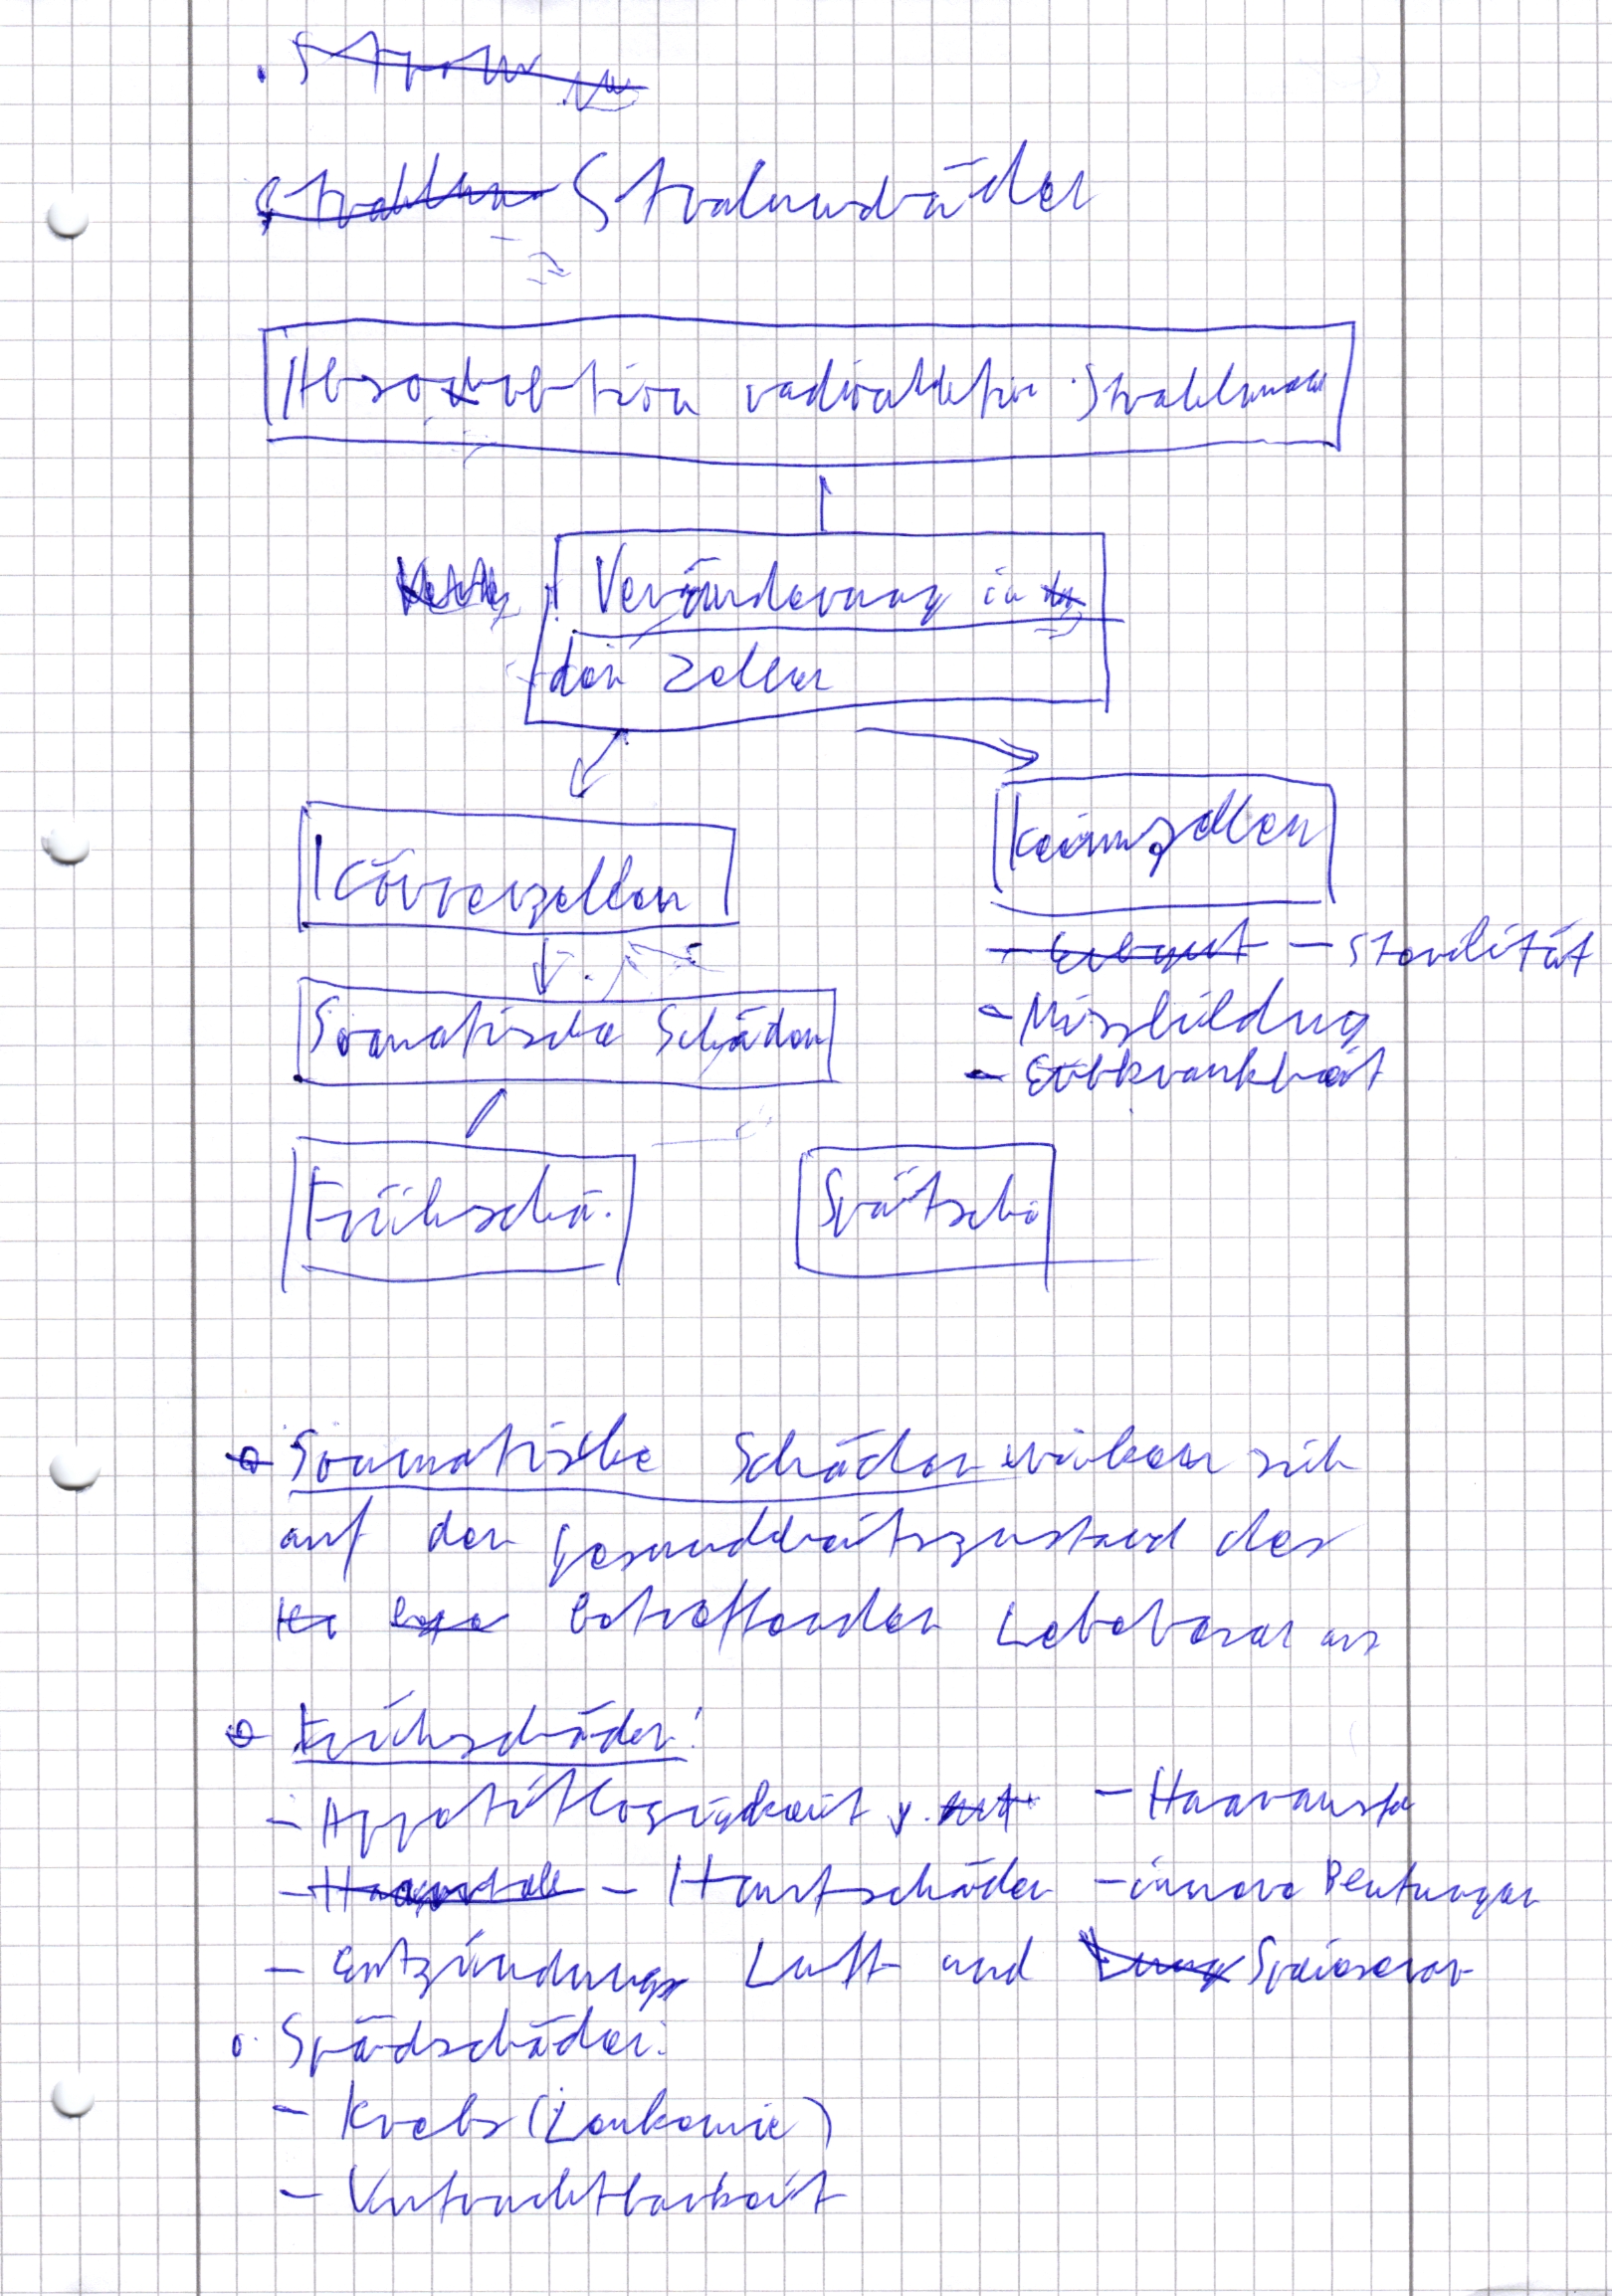 Absorbtion radioaktive Strahlung
Veränderung in
den Zellen
Körperzellen
Keimzellen
- Sterilität
- Missbildung
- Erbkrankheit
Somatische Schäden
Frühschä.
Spätschä
Somatische Schäden wirken sich
auf den gesundheitszustand des
betroffenden Lebebesen aus
Frühschäden:
- Appetitlosigkeit - Haarausfa
- Hautschäden - innere Blutungen
- Entzündungen Luft- und Speiserör
Spädschäden:
- Krebs (Leukemie)
- Unfruchtbarkeit